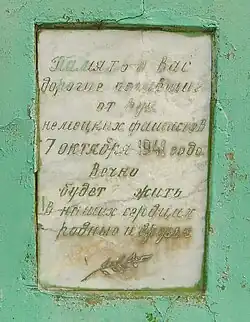 Память о Вас
дорогие погибшие
от рук
немецких фашистов
7 октября 1941 года
Вечно
будет жить
В наших сердцах
родные и друзья